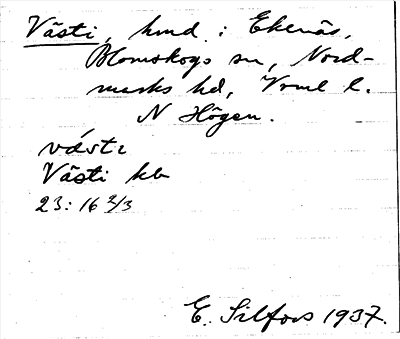 Västi, hmd i Ekenäs,
Blomskogs sn, Nord-
marks hd, Vrml l.
N Högen.
västɩ
Västi kb
23: 16 2/3
E. Silfors 1937.